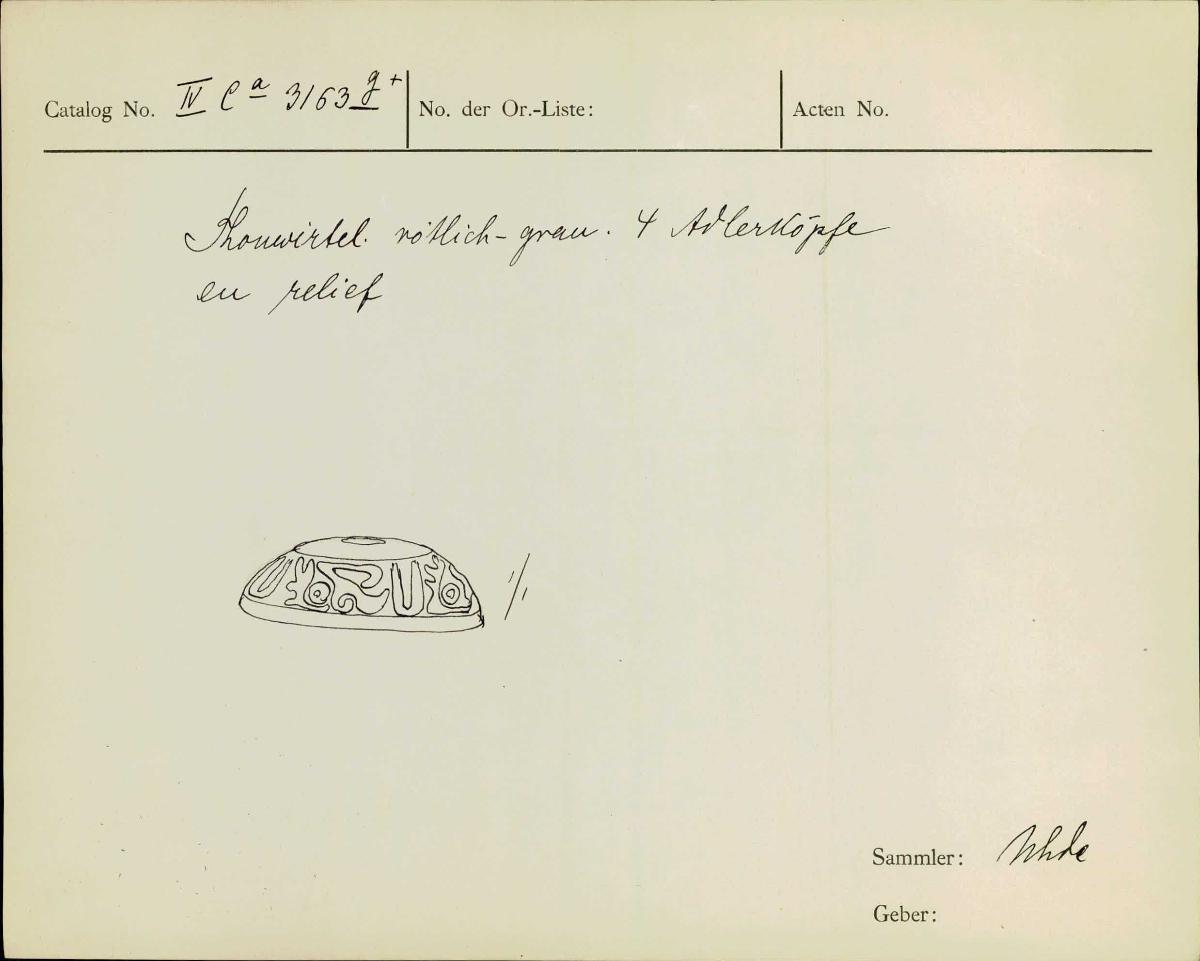 Catalog No. IV C a 3163 g + No. der Or.-Liste: Acten No.
Thonwirtel. rötlich-grau. 4 Adlerköpfe
en relief
1/1
Sammler: Uhde
Geber: